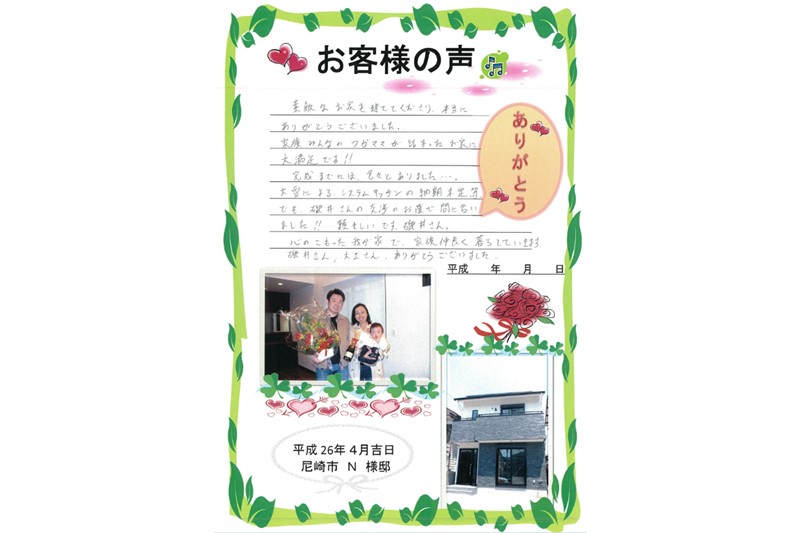 お客様の声
素敵なお家を建ててくださり、本当に
ありがとうございました。
家族みんなのワガママが詰まったお家に
大満足です!!
完成までには、色々とありました…。
大雪による、システムキッチンの納期未定等
でも、磯井さんの交渉のお蔭で間に合い
ました!! 頼もしいです、磯井さん。
心のこもった我が家で、家族仲良く暮らしていきます。
磯井さん、大工さん、ありがとうございました。
ありがとう
平成 年 月 日
平成26年4月吉日
尼崎市 N 様邸